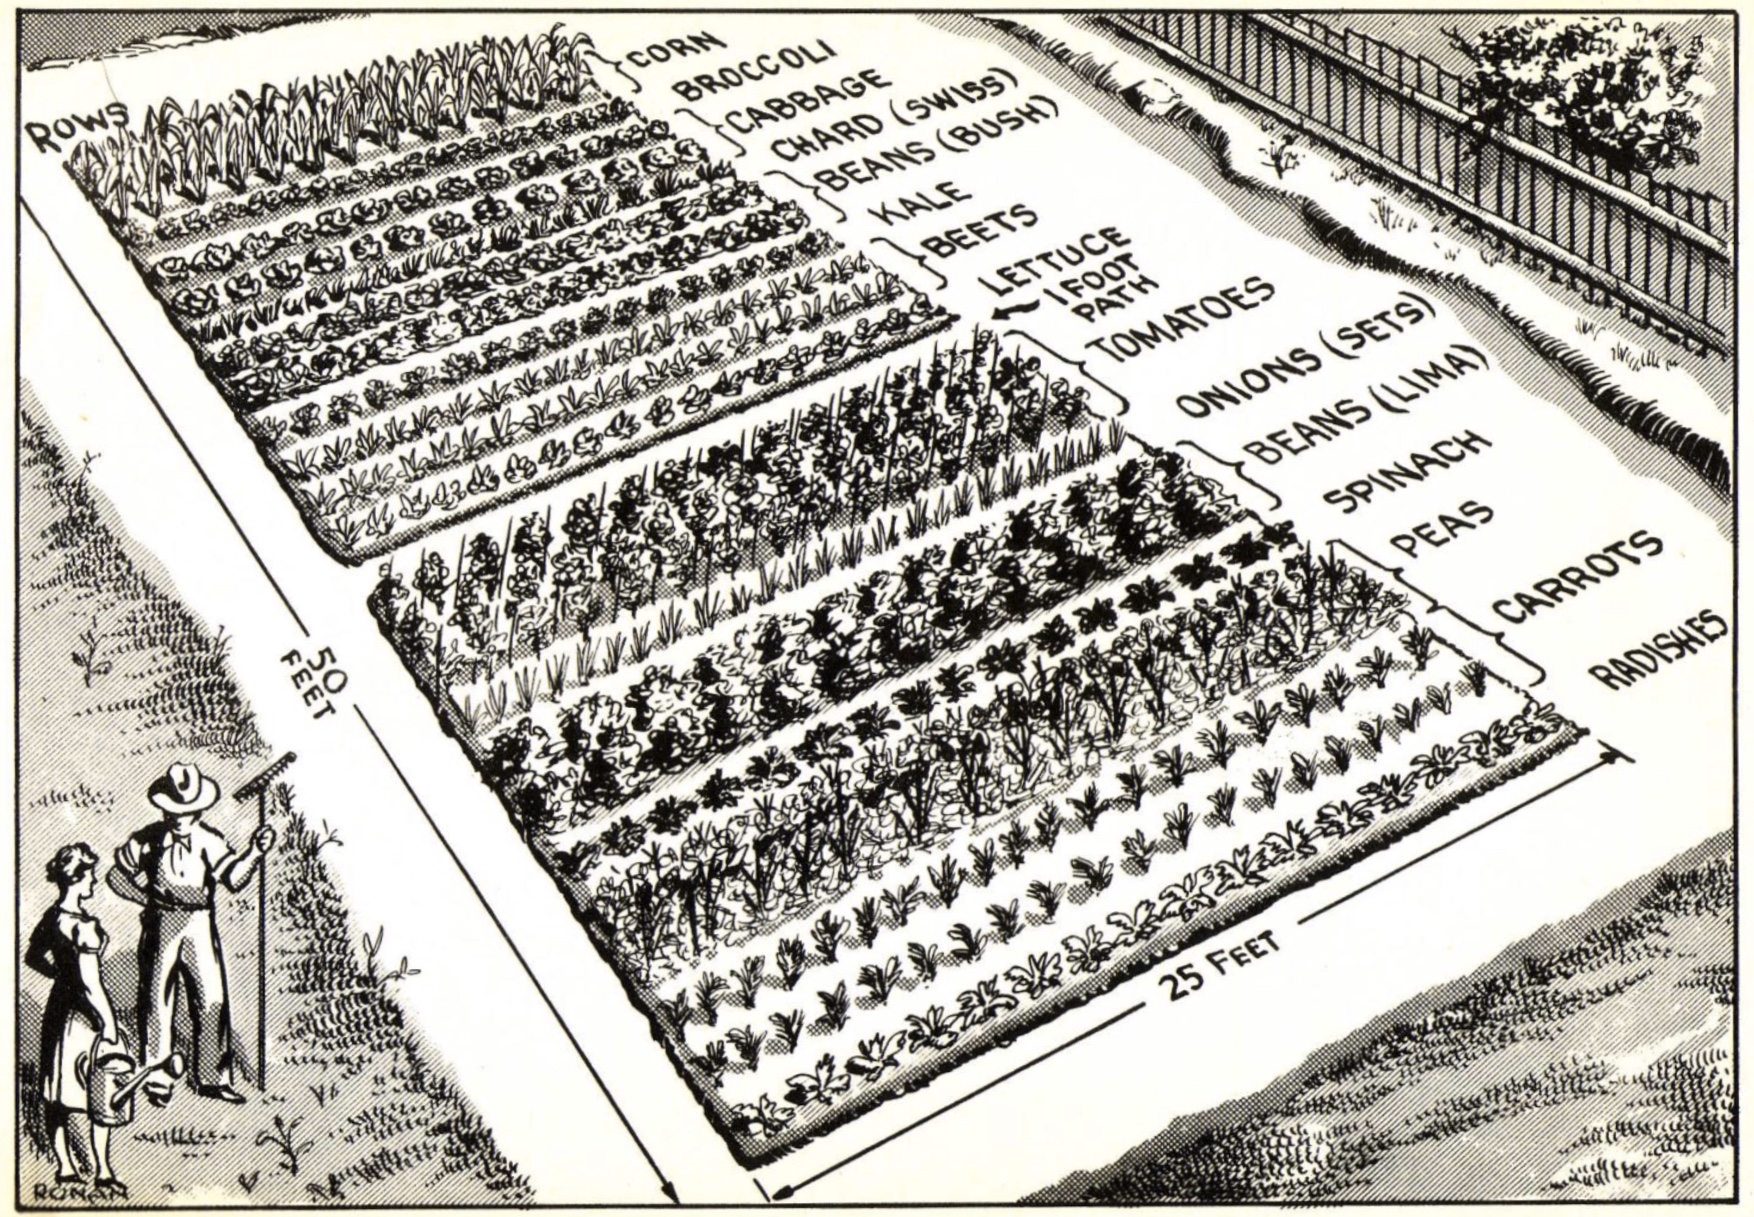 ROWS
CORN
BROCCOLI
CABBAGE
CHARD (SWISS)
BEANS (BUSH)
KALE
BEETS
LETTUCE
1 FOOT
PATH
TOMATOES
ONIONS (SETS)
BEANS (LIMA)
SPINACH
PEAS
CARROTS
RADISHES
50
FEET
25 FEET
ROMAN